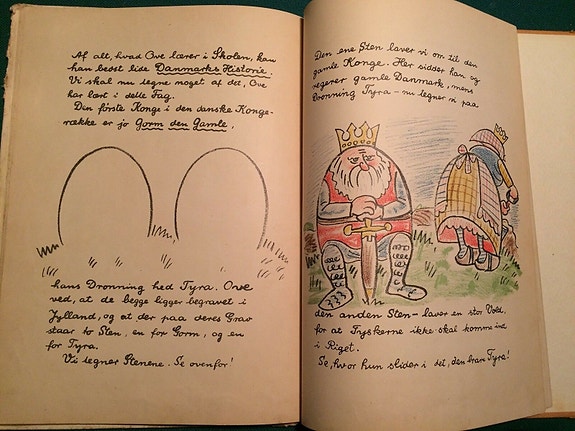 Af alt, hvad Ove lærer i Skolen, kan
han bedst lide Danmarks Historie.
Vi skal nu tegne noget af det, Ove
har lært i dette Fag.
Den første Konge i den danske Konge-
række er jo Gorm den Gamle,
hans Dronning hed Tyra. Ove
ved, at de begge ligger begravet i
Jylland, og at der paa deres Grav
staar to Sten, en for Gorm, og en
for Tyra.
Vi tegner Stenene. Se ovenfor!
Den ene Sten laver vi om til den
gamle Konge. Her sidder han og
regerer gamle Danmark, mens
Dronning Tyra - nu tegner vi paa
den anden Sten - laver en stor Vold,
for at Tyskerne ikke skal komme ind
i Riget.
Se, hvor hun slider i det, den brave Tyra!